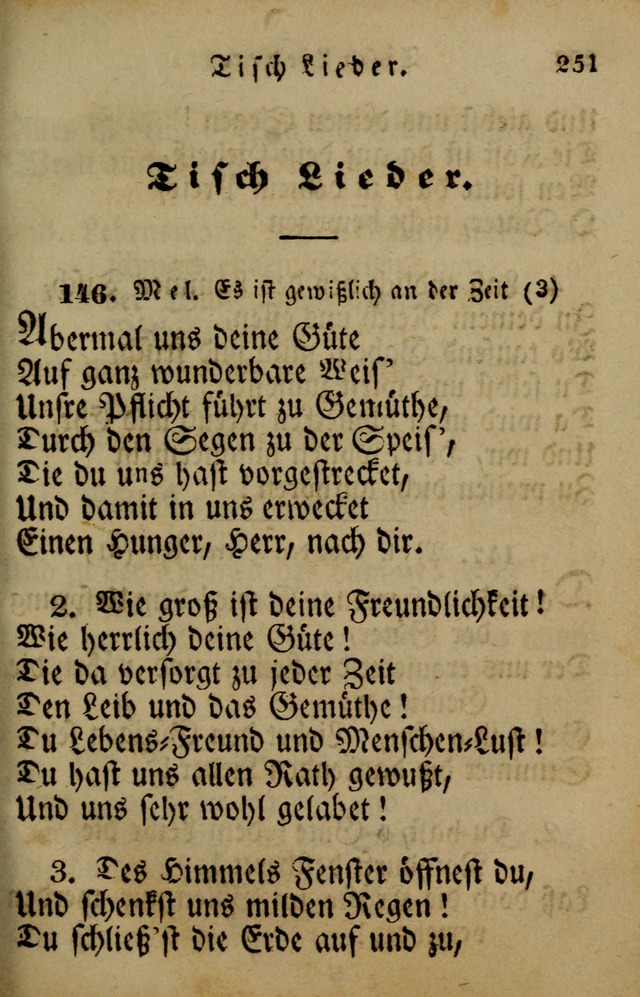 Tisch Lieder. 251
Tisch Lieder.
146. Mel. Es ist gewißlich an der Zeit (3)
Abermal uns deine Güte
Auf ganz wunderbare Weis'
Unsre Pflicht führt zu Gemüthe,
Durch den Segen zu der Speis',
Die du uns hast vorgestrecket,
Und damit in uns erwecket
Einen Hunger, Herr, nach dir.
2. Wie groß ist deine Freundlichkeit!
Wie herrlich deine Güte!
Die da versorgt zu jeder Zeit
Den Leib und das Gemüthe!
Du Lebens-Freund und Menschen-Lust!
Du hast uns allen Rath gewußt,
Und uns sehr wohl gelabet!
3. Des Himmels Fenster öffnest du,
Und schenkst uns milden Regen!
Du schließ'st die Erde auf und zu,